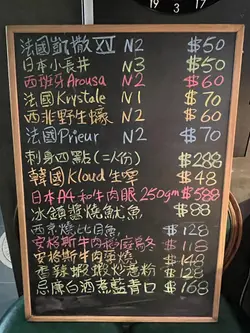 3
法國凱撒 XV N2 $50
日本小長井 N3 $50
西班牙Arousa N2 $60
法國Krystale N1 $70
西非野生蠔 N2 $60
法國Prieur N2 $70
刺身四點(二人份) $288
韓國Kloud生啤 $48
日本A4和牛肉眼250gm $588
冰鎮醬燒魷魚 $88
西京燒比目魚 $128
安格斯牛肉 $118
安格斯牛肉 燒 $148
香辣蝦 炒意粉 $128
忌廉白酒煮藍青口 $168